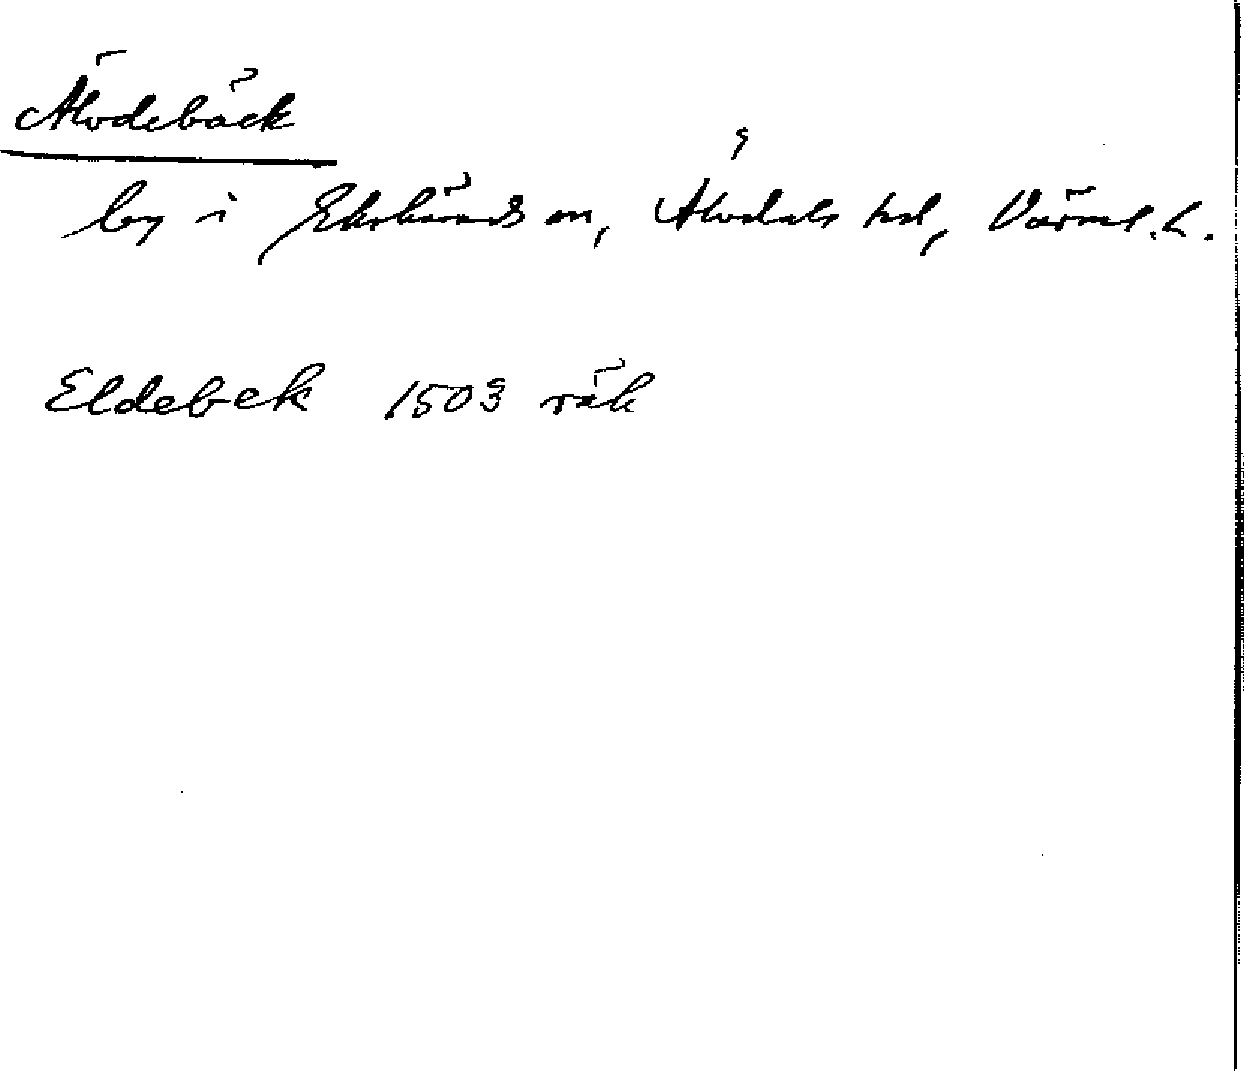 Älvdebäck
by i Ekshärads sn, Älvdals hd, Värml. L.
Eldebek 1503 räk